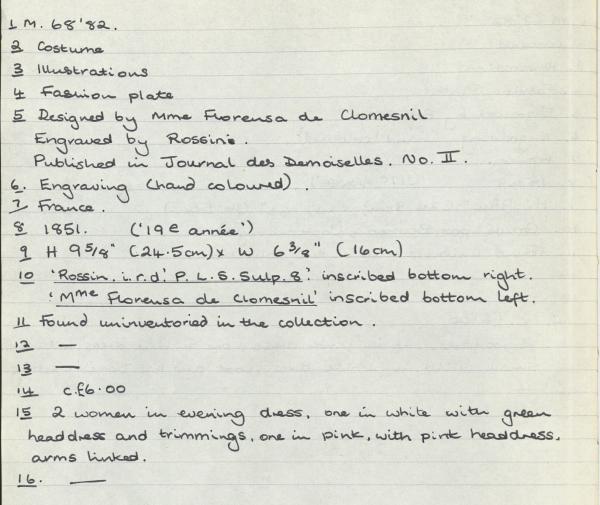 1 M. 68'82.
2 Costume
3 Illustrations
4 Fashion plate
5 Designed by Mme Florensa de Clomesnil
Engraved by Rossini.
Published in Journal des Demoiselles. No. II.
6. Engraving (hand coloured).
7 France.
8 1851. ('19e année')
9 H 9 5/8" (24.5cm) x W 6 3/8" (16cm)
10 'Rossin. i.r.d.' P. L. S. Sulp. 8.' inscribed bottom right.
'Mme Florensa de Clomesnil' inscribed bottom left.
11 Found uninventoried in the collection.
12 —
13 —
14 c.£6.00
15 2 women in evening dress, one in white with green
headdress and trimmings, one in pink, with pink headdress,
arms linked.
16. —